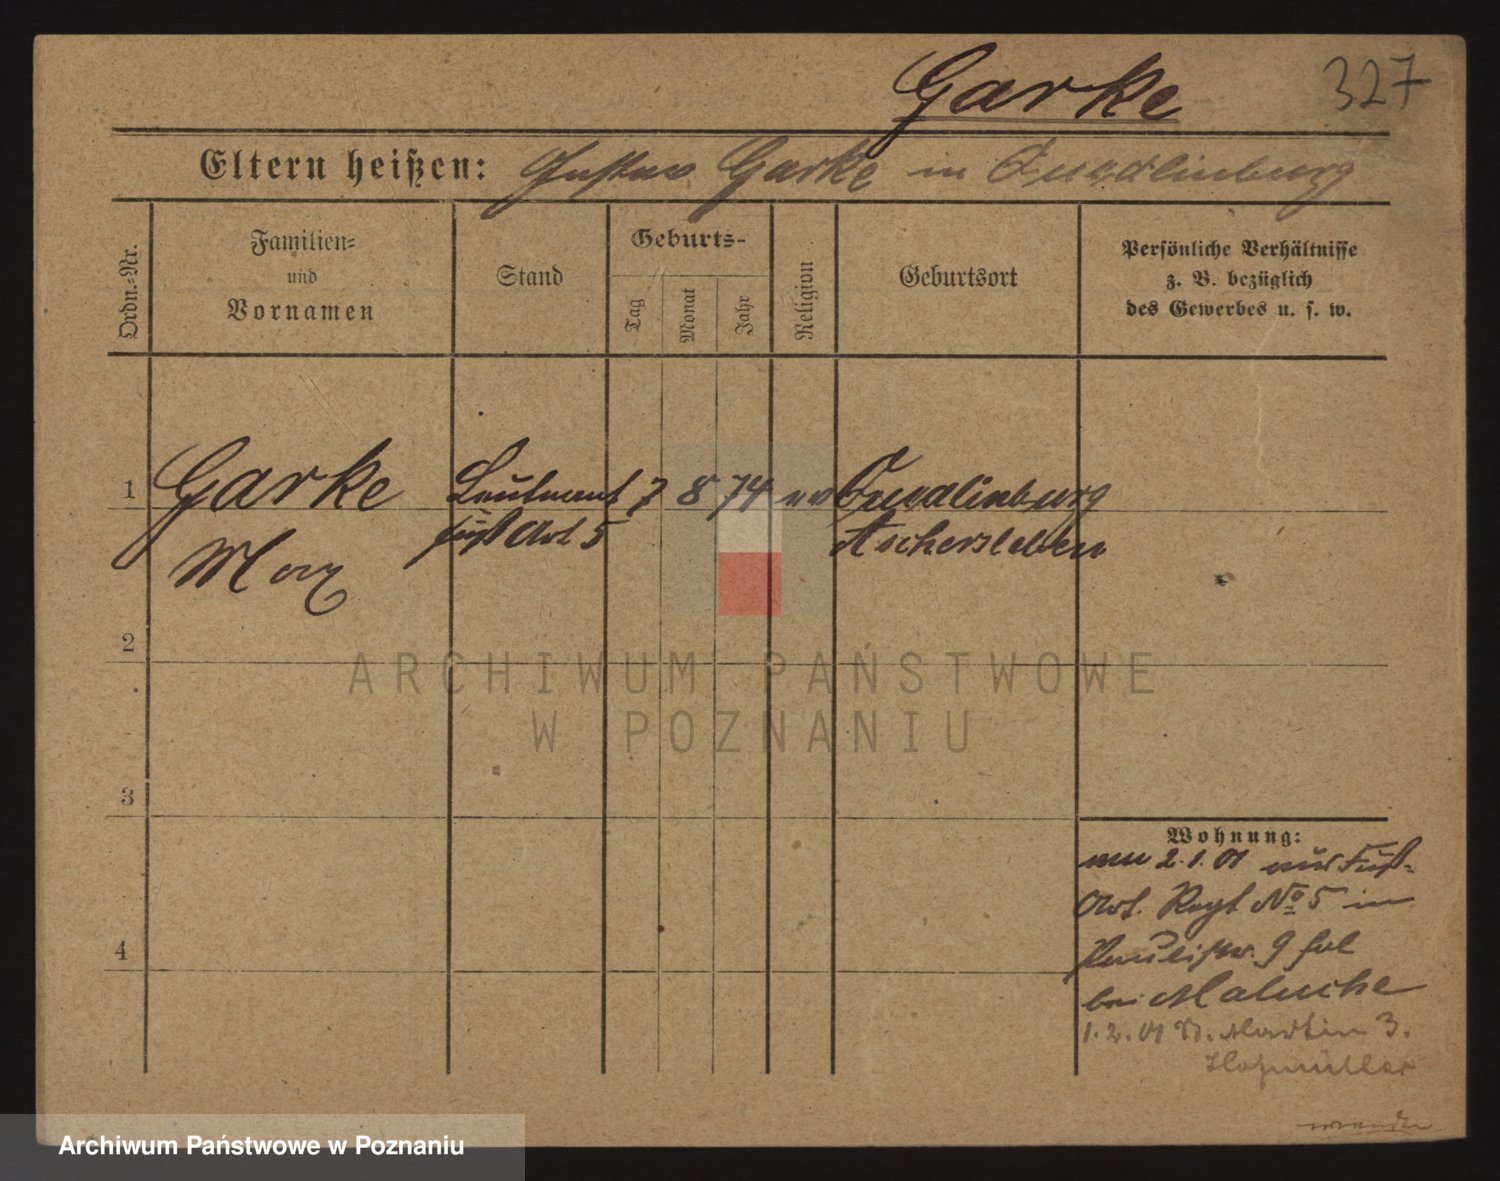 Garke 327
Eltern heißen: Gustav Garke in Quedlinburg
Ordn.-Nr.
Familien-
und
Vornamen
Stand
Geburts-
Tag
Monat
Jahr
Religion
Geburtsort
Persönliche Verhältnisse
z. B. bezüglich
des Gewerbes u. s. w.
1 Garke Leutnant 7 8 74 ev Quedlinburg
Fuß Art 5 Aschersleben
Max
2
3
4
Wohnung:
2.1.01 Fuß-
Art. Regt No 5 in
9 hpl
bei Maluche
1.2.01 St. Martin 3.
Hofmüller
wenden
ARCHIWUM PAŃSTWOWE
W POZNANIU
Archiwum Państwowe w Poznaniu